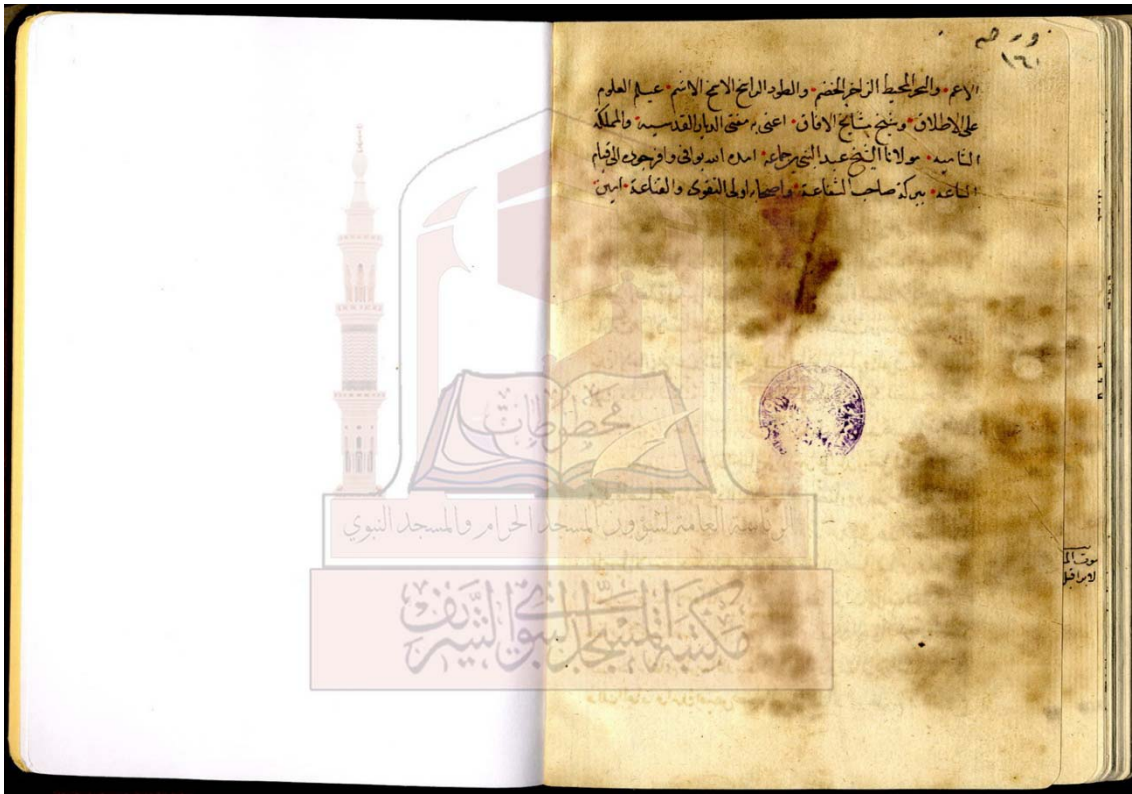 ورصه
١٦١
الاعم • والبحر المحيط الزاخر الخضم • والطود الراسخ الاشم • عيلم العلوم
على الاطلاق • وشيخ مشايخ الافاق • اعنى به مفتى الديار القدسية • والمملكة
الشاميه • مولانا الشيخ عبد النبي بن جماعه • امده الله بوافى وافر جوده الى قيام
الساعه • ببركة صاحب الشفاعة • واصحابه اولى التقوى والقناعة • امين
مخطوطات
الرئاسة العامة لشؤون المسجد الحرام والمسجد النبوي
مكتبة المسجد النبوي الشريف